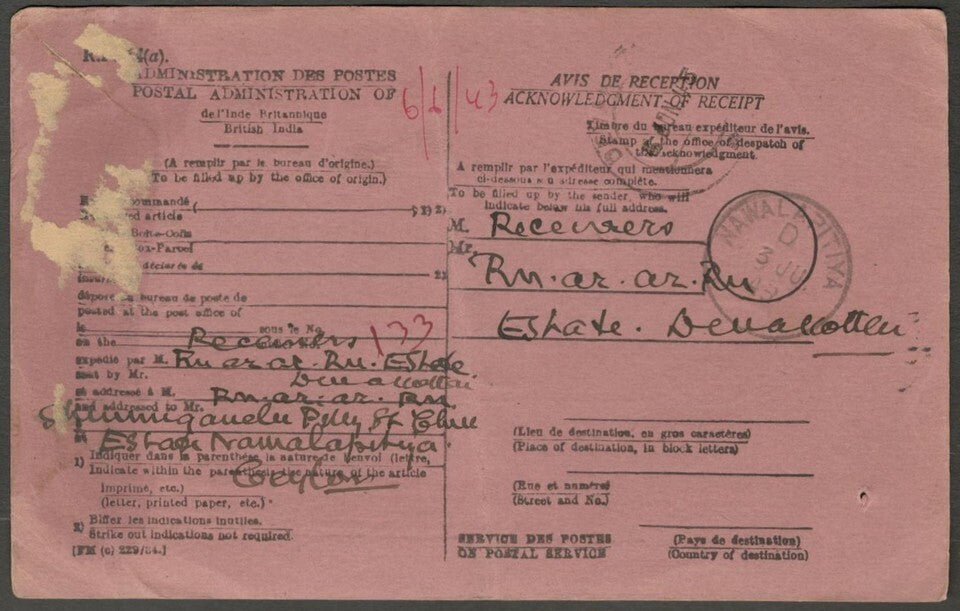 ADMINISTRATION DES POSTES
POSTAL ADMINISTRATION OF
de l'Inde Britannique
British India
(A remplir par le bureau d'origine.)
To be filled up by the office of origin.)
commandé (
article
2)
Boîte
ox-Parcel
déclarée de
2)
déposé au bureau de poste de
posted at the post office of
le sous le No.
on the Receivers 133
expédié par M. Rm. ar. ar. Rm. Estate
sent by Mr. Devakottai
et adressé à M. Rm. ar. ar. Rm
and addressed to Mr.
Estate Nawalapitiya
Ceylon
1) Indiquer dans la parenthèse la nature de l'envoi (lettre,
Indicate within the parenthesis the nature of the article
imprimé, etc.)
(letter, printed paper, etc.)
2) Biffer les indications inutiles.
Strike out indications not required.
[FM (c) 229/34.]
6/6/43
AVIS DE RECEPTION
ACKNOWLEDGMENT OF RECEIPT
Timbre du bureau expéditeur de l'avis.
Stamp of the office of despatch of
the acknowledgment.
A remplir par l'expéditeur qui mentionera
ci-dessous son adresse complète.
To be filled up by the sender, who will
indicate below his full address.
M. Receivers
Mr.
Rm. ar. ar. Rm
Estate. Devakottai
NAWALAPITIYA
D
3 JU
(Lieu de destination, en gros caractères)
(Place of destination, in block letters)
(Rue et numéro)
(Street and No.)
SERVICE DES POSTES
ON POSTAL SERVICE
(Pays de destination)
(Country of destination)